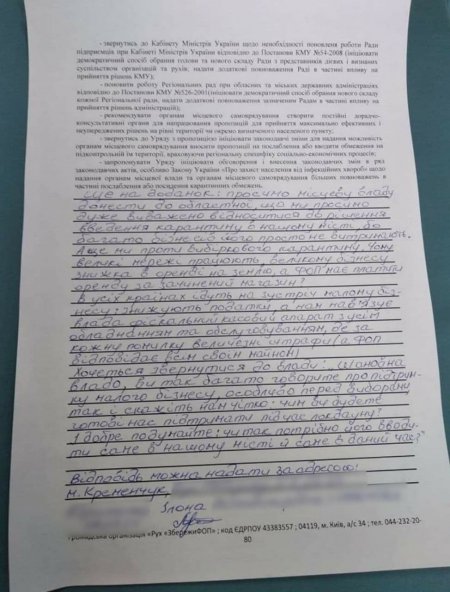 - звернутись до Кабінету Міністрів України щодо необхідності поновленя роботи Ради
підприємців при Кабінеті Міністрів України відповідно до Постанови КМУ №54-2008 (ініціювати
демократичний спосіб обрання голови та нового складу Ради з представників дієвих і визнаних
суспільством організацій та рухів; надати додаткові повноваження Раді в частині впливу на
прийняття рішень КМУ);
- поновити роботу Регіональних рад при обласних та міських державних адміністраціях
відповідно до Постанови КМУ №526-2001(ініціювати демократичний спосіб обрання нового складу
кожної Регіональної ради, надати додаткові повноваження зазначеним Радам в частині впливу на
прийняття рішень адміністрації);
- рекомендувати органам місцевого самоврядування створити постійні дорадчо-
консультативні органи для напрацювання пропозицій для прийняття максимально ефективних і
неупереджених рішень на рівні територій чи окремо визначеного населеного пункту;
- звернутись до Уряду з пропозицією ініціювати законодавчі зміни для надання можливість
органам місцевого самоврядування вносити пропозиції на послаблення або введення обмежень на
підконтрольній їм території, враховуючи регіональну специфіку соціально-економічних процесів;
- запропонувати Уряду ініціювати обговорення і внесення законодавчих змін в ряд
законодавчих актів, особливо Закону України «Про захист населення від інфекційних хвороб» щодо
надання органам місцевої влади та органам місцевого самоврядування більших повноважень в
частині послаблення або посилення карантинних обмежень.
Ще на додаток і просимо місцеву владу
донести до обласної, що ми просимо
дуже виважено відноситися до рішення
введення карантину в нашому місті, бо
багато бізнесів його просто не витримають.
А ще ми проти вибіркового карантину. Чому
великі мережі працюють, великому бізнесу
знижка в оренді на землю, а ФОП має платити
оренду за зачинений магазин?
В усіх країнах ідуть на зустріч малому біз-
несу: знижують податки, а нам нав'язує
влада фіскальний касовий апарат з усім
обладнанням та обслуговуванням, де за
кожну помилку величезні штрафи (а ФОП
відповідає всім своїм майном)
Хочеться звернутися до влади: „Шановна
владо, ви так багато говорите про підтрим-
ку малого бізнесу, особливо перед виборами
так і скажіть нам чітко: чим ви будете
готові нас підтримати під час локдауну?
І добре подумайте: чи так потрібно його вводи-
ти саме в нашому місті й саме в даний час?"
Відповідь можна надати за адресою:
м. Кременчук,
Ілона
Громадська організація «Рух «ЗбережиФОП» ; код ЄДРПОУ 43383557 ; 04119, м. Київ, а/с 34 ; тел. 044-232-20-
80